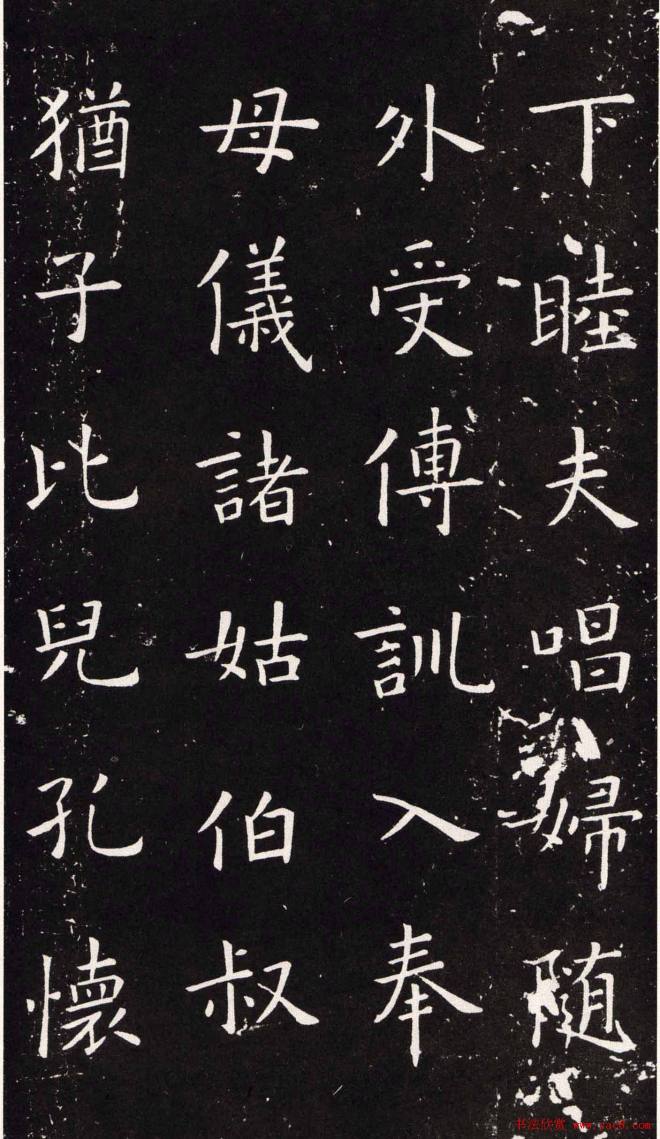 下睦夫唱婦隨
外受傅訓入奉
母儀諸姑伯叔
猶子比兒孔懷
书法欣赏 www.yac8.com